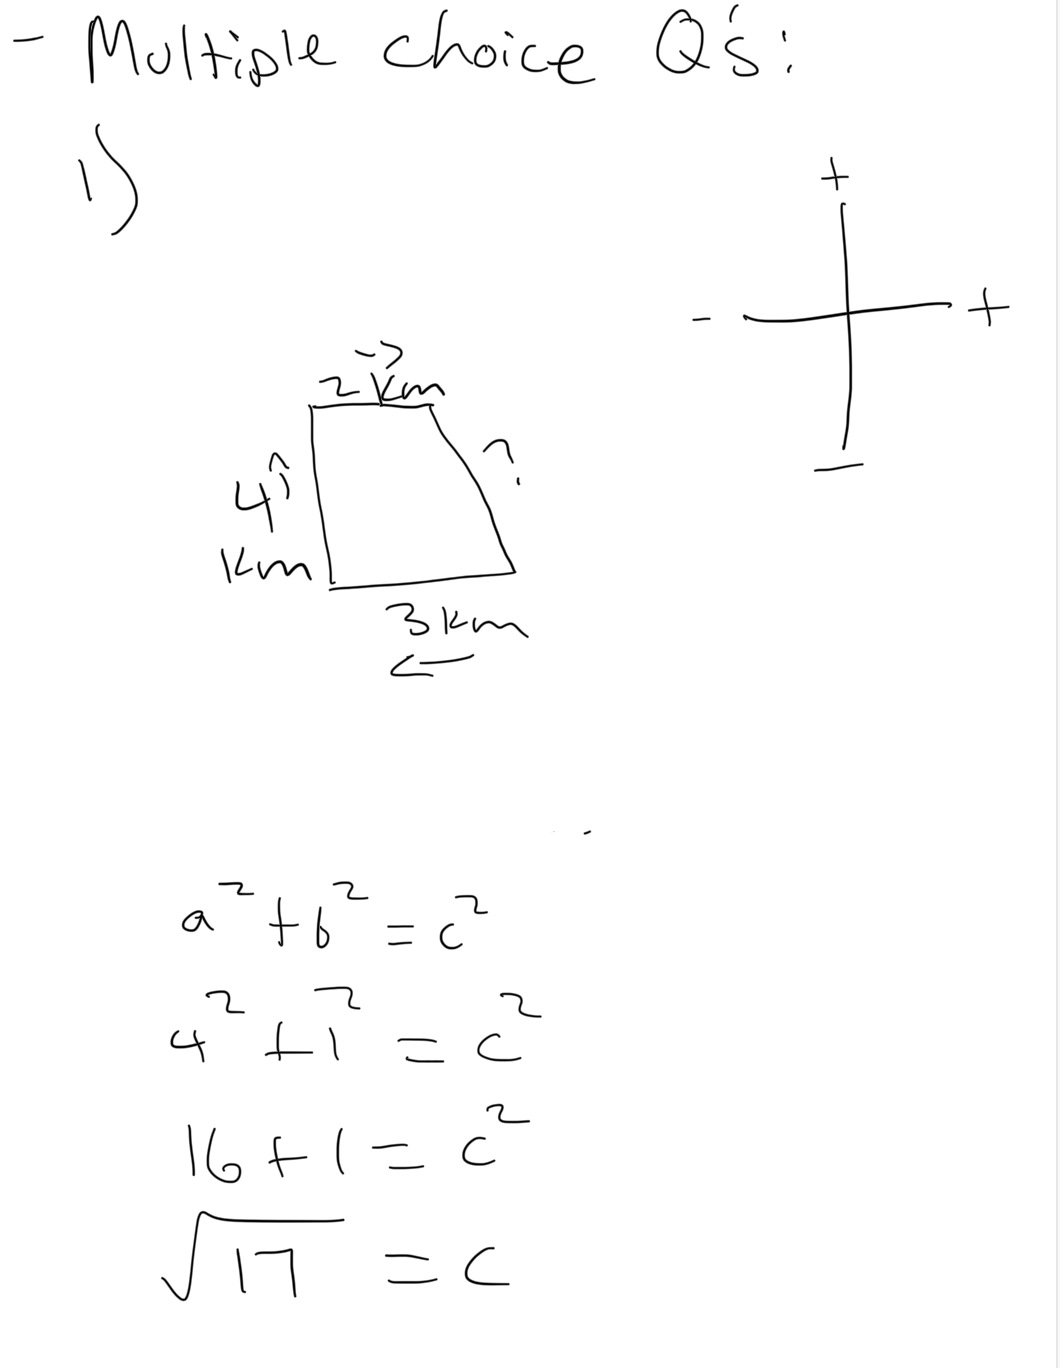 - Multiple choice Q's:
1)
+
- +
-
->
2 km
4 ^
?
km
3 km
<-
a² + b² = c²
4² + 1² = c²
16 + 1 = c²
√17 = c